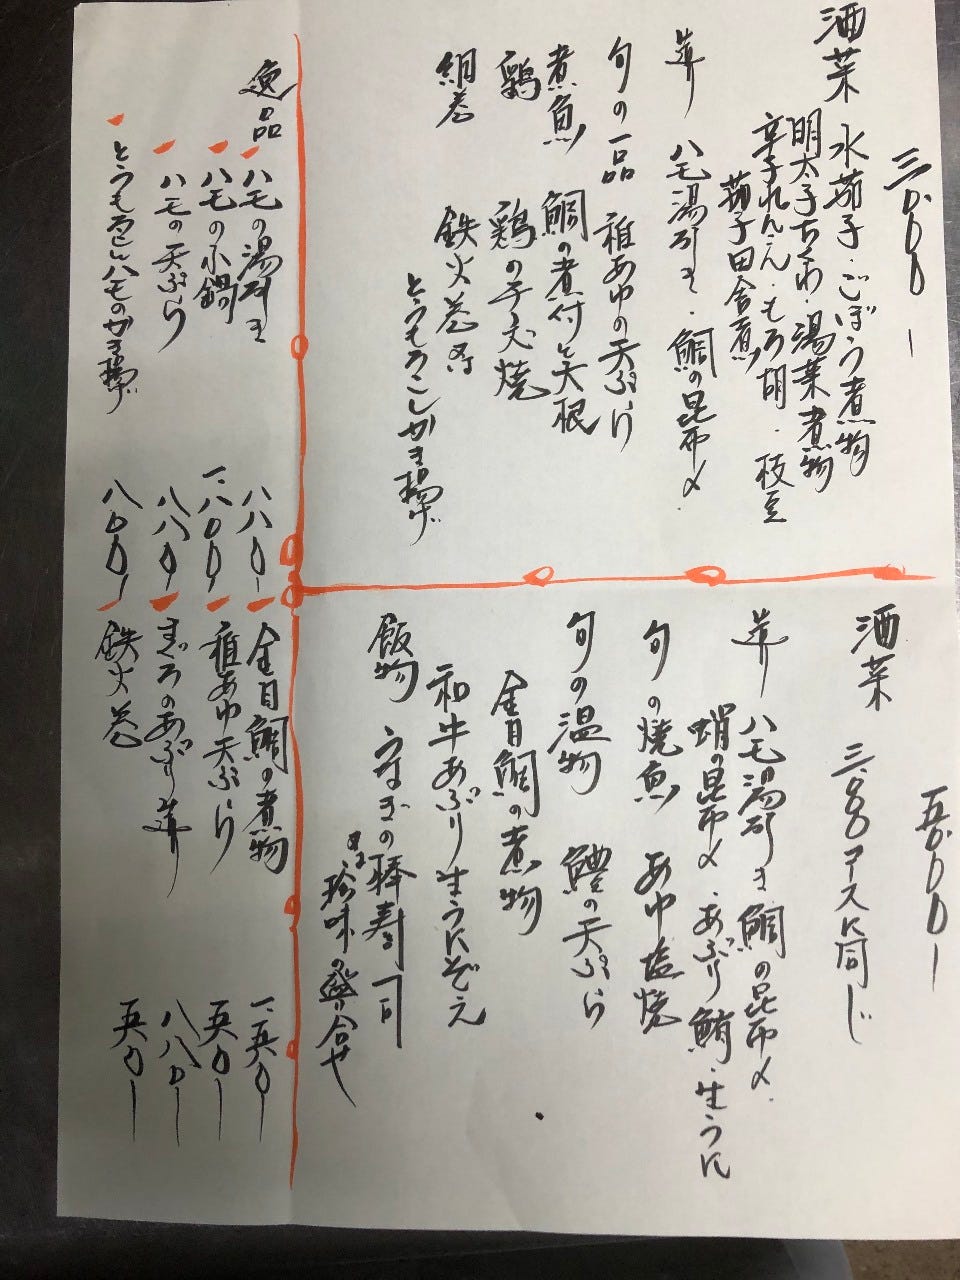 三、〇〇〇ー
酒菜 水茄子・ごぼう煮物
明太子ちくわ・湯葉煮物
辛子れんこん・もろ胡・枝豆
茄子田舎煮
造り ハモ湯引き・鯛の昆布〆
旬の一品 稚あゆの天ぷら
煮魚 鯛の煮付と大根
鶏 鶏の子犬焼
絹巻 鉄火巻
とうもろこしかき揚げ
五、〇〇〇ー
酒菜 三、〇〇〇コースに同じ
造り ハモ湯引き 鯛の昆布〆
蛸の昆布〆・あぶり鮪・生うに
旬の焼魚 あゆ塩焼
旬の温物 鱧の天ぷら
金目鯛の煮物
和牛あぶり生うにぞえ
飯物 うなぎの棒寿司
又は珍味の盛り合せ
逸品
ハモの湯引き 八八〇ー
ハモの小鍋 一、八〇〇ー
ハモの天ぷら 八八〇ー
とうもろこしハモのかき揚げ 八〇〇ー
金目鯛の煮物 一、五〇〇ー
稚あゆ天ぷら 五〇〇ー
まぐろのあぶり造り 八八〇ー
鉄火巻 五〇〇ー